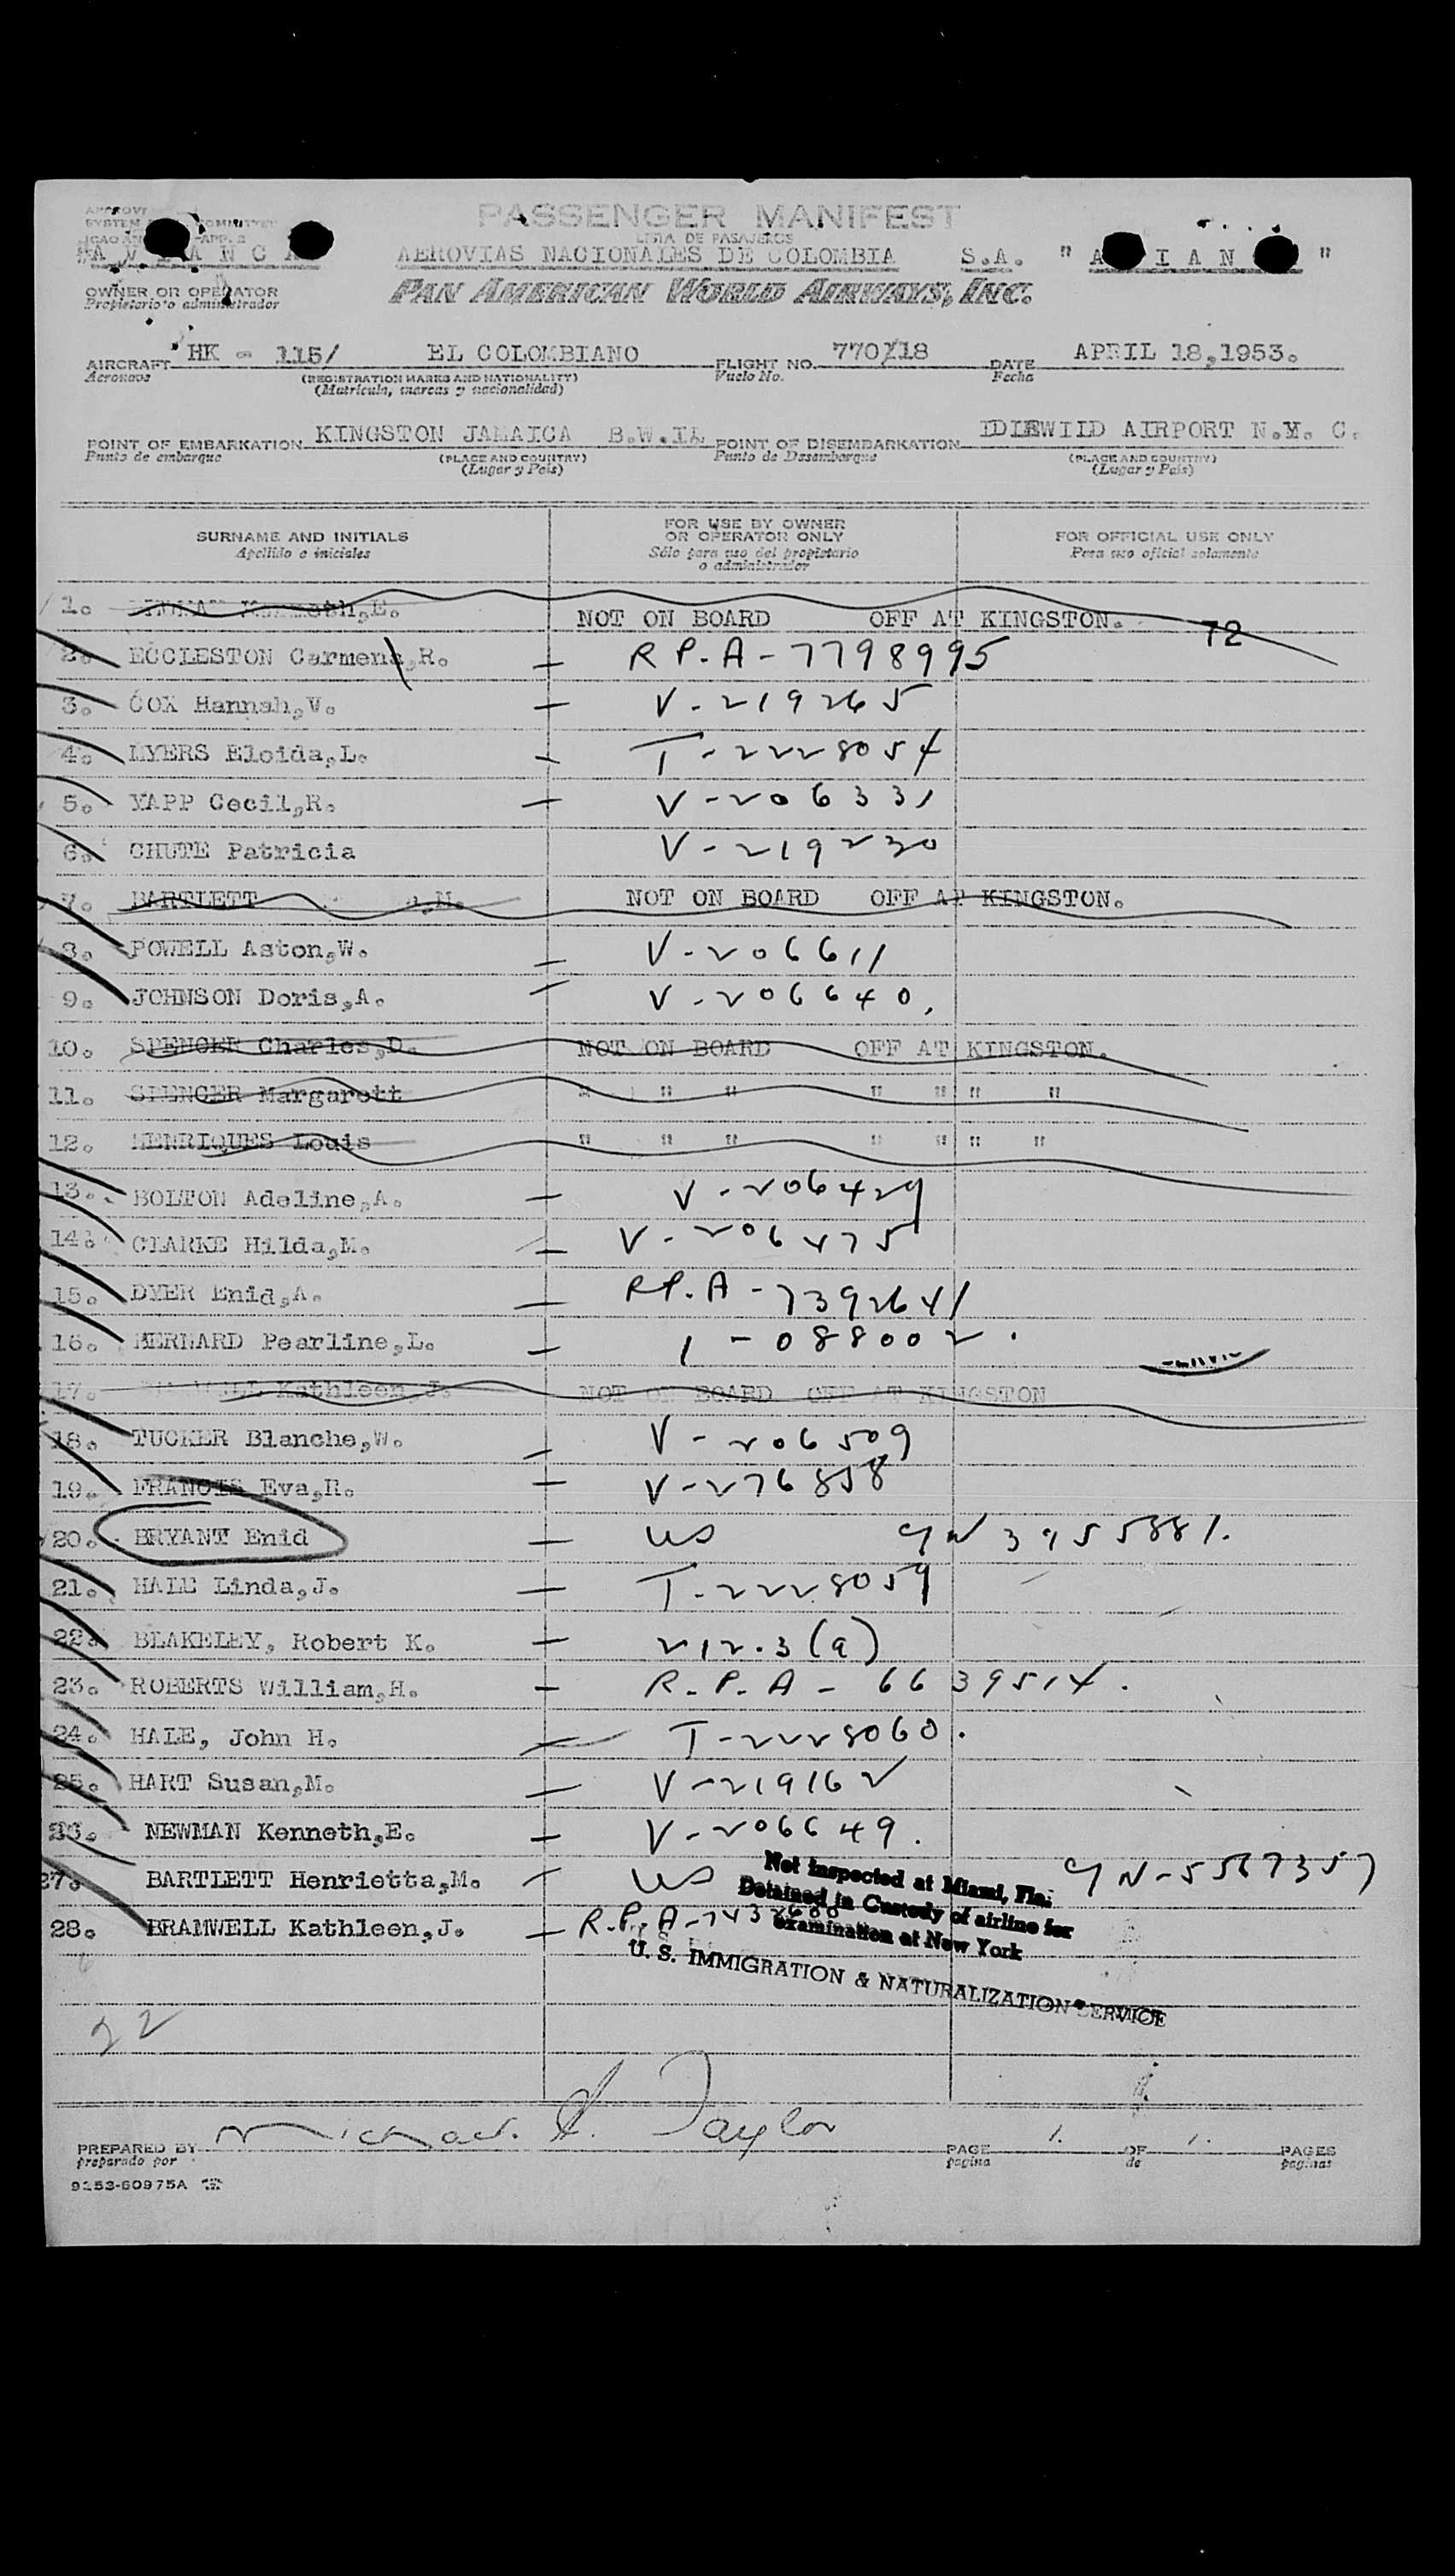 PASSENGER MANIFEST
LISTA DE PASAJEROS
AEROVIAS NACIONALES DE COLOMBIA S.A.
OWNER OR OPERATOR
Propietario o administrador
PAN AMERICAN WORLD AIRWAYS, INC.
AIRCRAFT HK - 115/ EL COLOMBIANO FLIGHT NO. 770/18 DATE APRIL 18,1953.
Aeronave (REGISTRATION MARKS AND NATIONALITY) Vuelo No. Fecha
(Matrícula, marcas y nacionalidad)
POINT OF EMBARKATION KINGSTON JAMAICA B.W.I. POINT OF DISEMBARKATION IDLEWILD AIRPORT N.Y. C.
Punto de embarque (PLACE AND COUNTRY) Punto de Desembarque (PLACE AND COUNTRY)
(Lugar y País) (Lugar y País)
SURNAME AND INITIALS FOR USE BY OWNER OR OPERATOR ONLY FOR OFFICIAL USE ONLY
Apellido e iniciales Sólo para uso del propietario o administrador Para uso oficial solamente
1. Kenneth,E. NOT ON BOARD OFF AT KINGSTON. 72
2. ECCLESTON Carmena,R. — R P.A-7798995
3. COX Hannah,V. — V-219265
4. LYERS Eloida,L. — T-2228054
5. YAPP Cecil,R. — V-206331
6. CHUTE Patricia V-219230
7. BARTLETT ,M. NOT ON BOARD OFF AT KINGSTON.
8. POWELL Aston,W. — V-206611
9. JOHNSON Doris,A. — V-206640.
10. SPENCER Charles,D. NOT ON BOARD OFF AT KINGSTON.
11. SPENCER Margarett " " " " " " "
12. HENRIQUES Louis " " " " " " "
13. BOLTON Adeline,A. — V-206429
14. CLARKE Hilda,M. — V-206475
15. DYER Enid,A. — RP.A-7392641
16. BERNARD Pearline,L. — 1-088002.
17. Kathleen,J. NOT ON BOARD OFF AT KINGSTON
18. TUCKER Blanche,W. — V-206509
19. FRANCIS Eva,R. — V-276858
20. BRYANT Enid — US 9N 3955881.
21. HALE Linda,J. — T-2228059
22. BLAKELEY, Robert K. — 212.3(a)
23. ROBERTS William,H. — R.P.A-6639514.
24. HALE, John H. — T-2228060.
25. HART Susan,M. — V-219162
26. NEWMAN Kenneth,E. — V-206649.
27. BARTLETT Henrietta,M. — US 9N-5567357
28. BRAMWELL Kathleen,J. — R.P.A-
Not Inspected at Miami, Fla.
Detained in Custody of airline for
examination at New York
U. S. IMMIGRATION & NATURALIZATION SERVICE
22
PREPARED BY Michael A. Taylor PAGE 1. OF 1. PAGES
preparado por página de páginas
9253-60975A